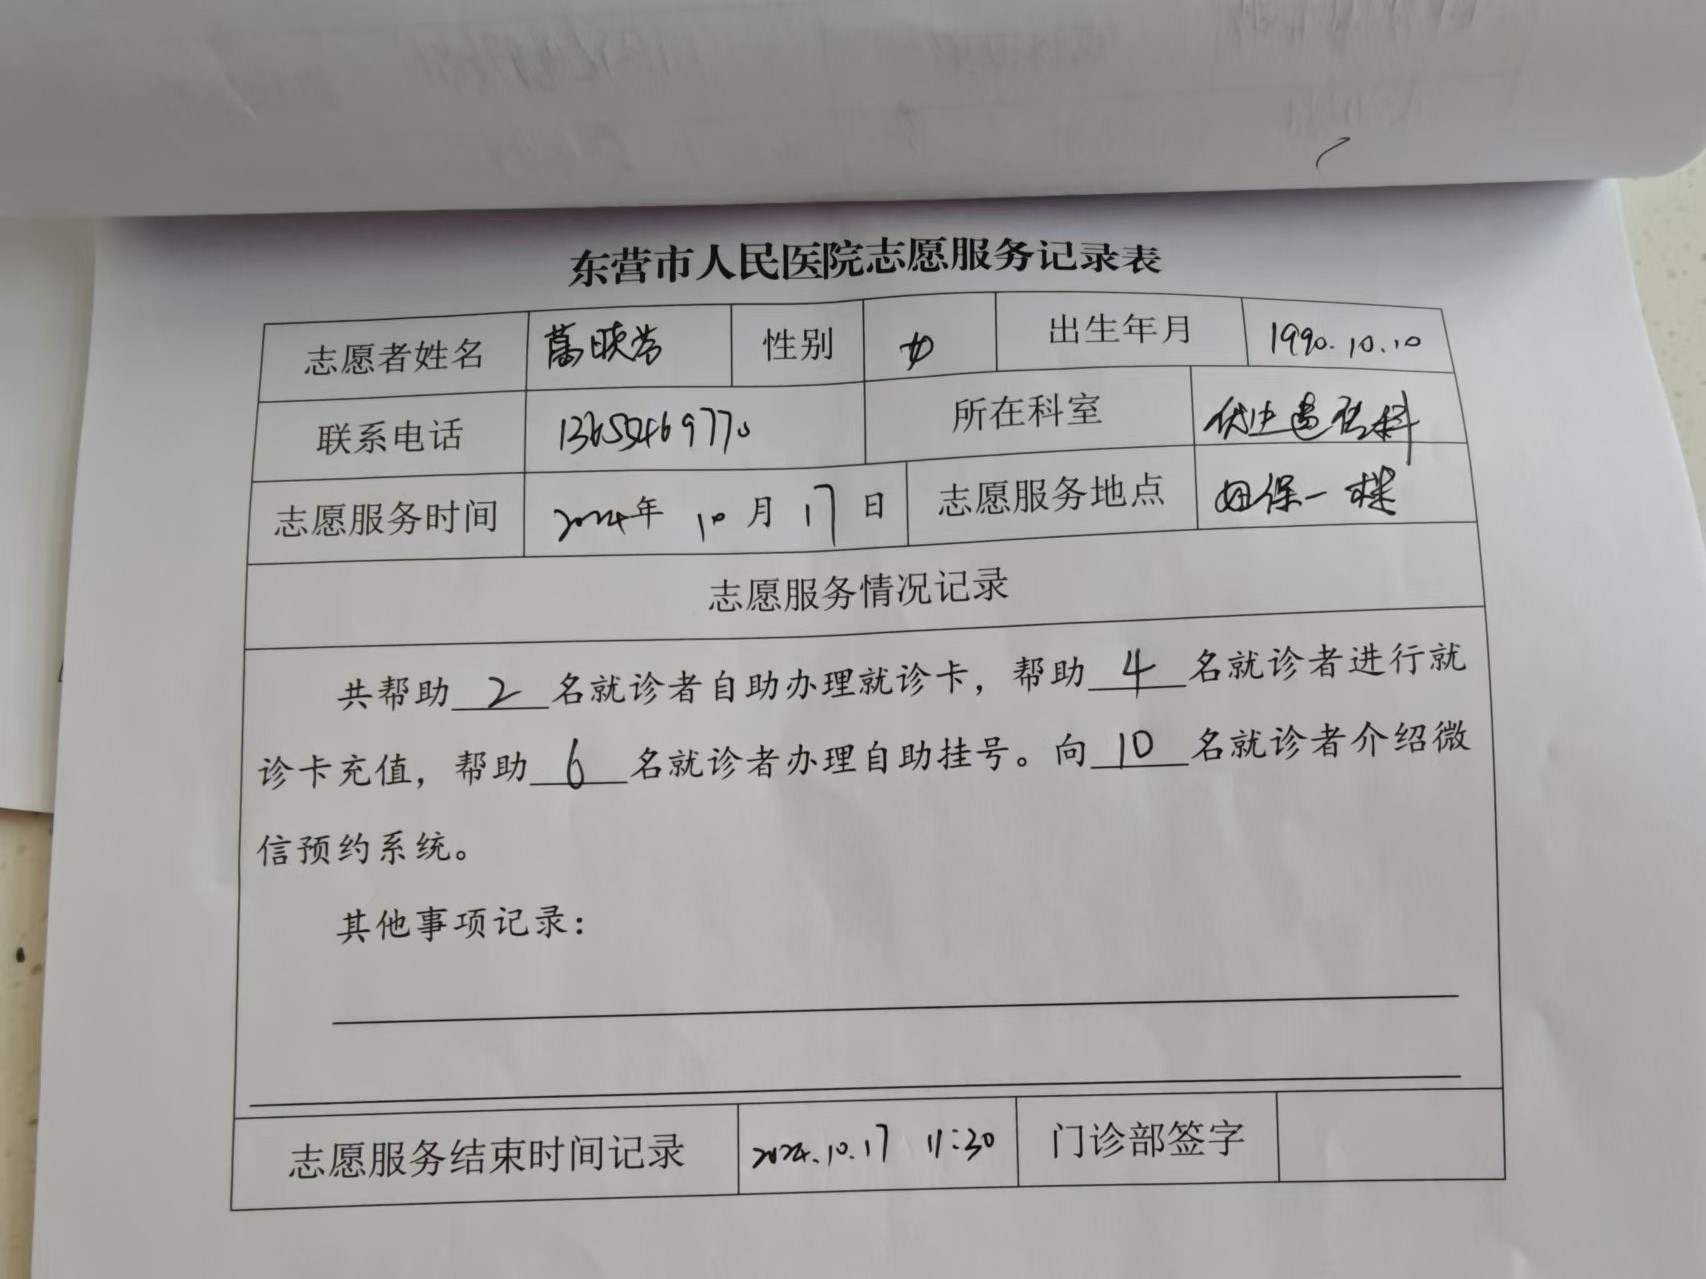 东营市人民医院志愿服务记录表
志愿者姓名 性别 女 出生年月 1990.10.10
联系电话 13655469770 所在科室 优生遗传科
志愿服务时间 2024年 10月17日 志愿服务地点 妇保一楼
志愿服务情况记录
共帮助 2 名就诊者自助办理就诊卡，帮助 4 名就诊者进行就
诊卡充值，帮助 6 名就诊者办理自助挂号。向 10 名就诊者介绍微
信预约系统。
其他事项记录：
志愿服务结束时间记录 2024.10.17 11:30 门诊部签字